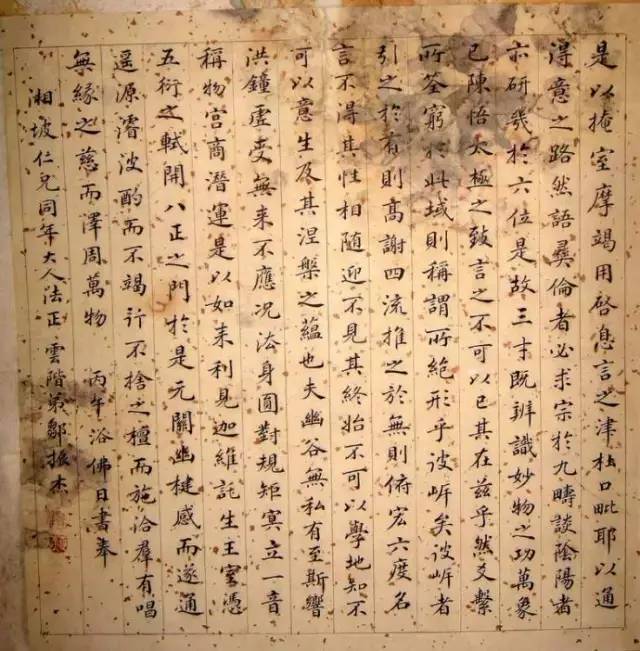 是以掩室摩竭用啓息言之津杜口毗耶以通
得意之路然語彝倫者必求宗於九疇談陰陽者
亦研幾於六位是故三才既辨識妙物之功萬象
已陳悟太極之致言之不可以已其在兹乎然爻繫
所筌窮於此域則稱謂所絶形乎彼岸矣彼岸者
引之於有則高謝四流推之於無則俯宏六度名
言不得其性相隨迎不見其終始不可以學地知不
可以意生及其涅槃之蘊也夫幽谷無私有至斯響
洪鐘虛受無來不應况法身圓對規矩冥立一音
稱物宮商潛運是以如来利見迦維託生王室憑
五衍之軾開八正之門於是元關幽楗感而遂通
遥源濬波酌而不竭行不捨之檀而施洽羣有唱
無緣之慈而澤周萬物 丙午浴佛日書奉
湘坡仁兄同年大人法正 雲階弟鄒振杰